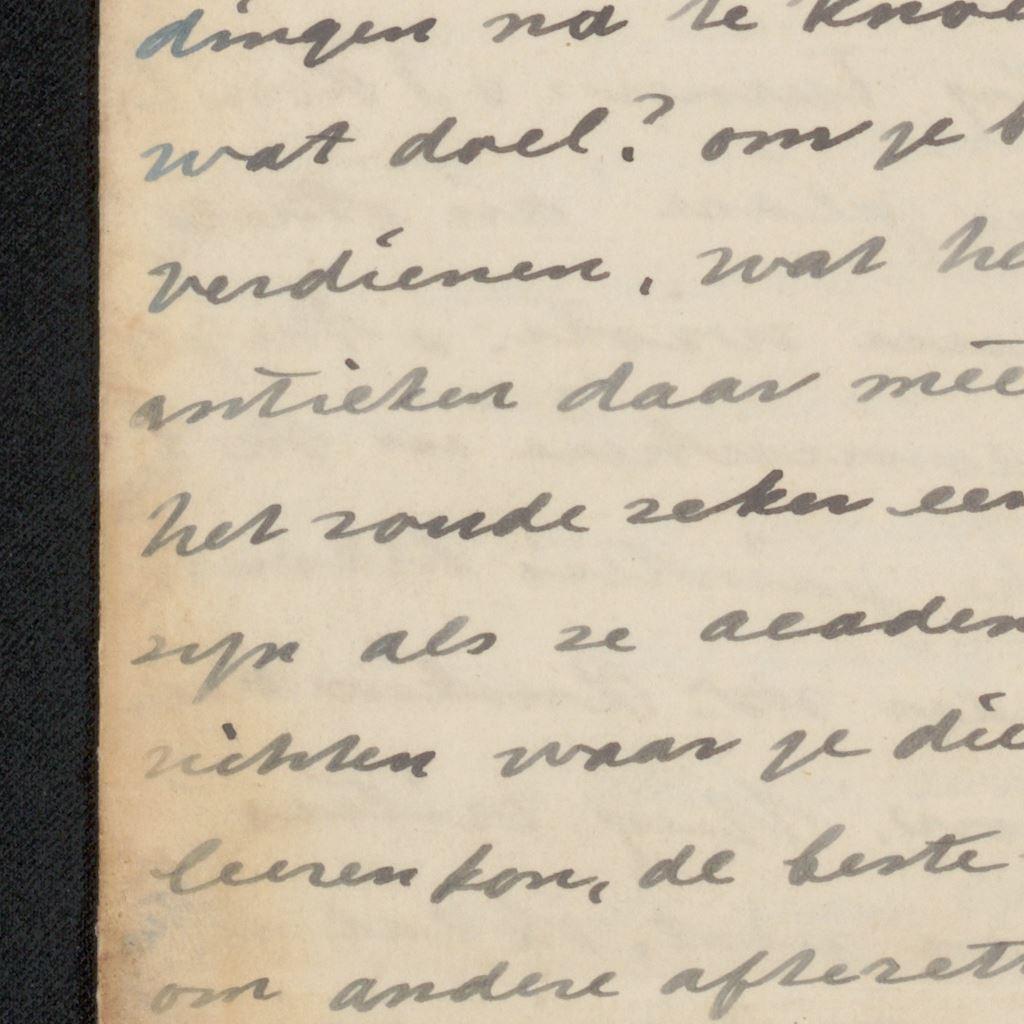 dingen na te knoe
wat doel? om je b
verdienen, wat he
antieken daar mee
het zoude zeker een
zijn als ze academ
richten waar je die
leeren kon, de beste
om andere afterett